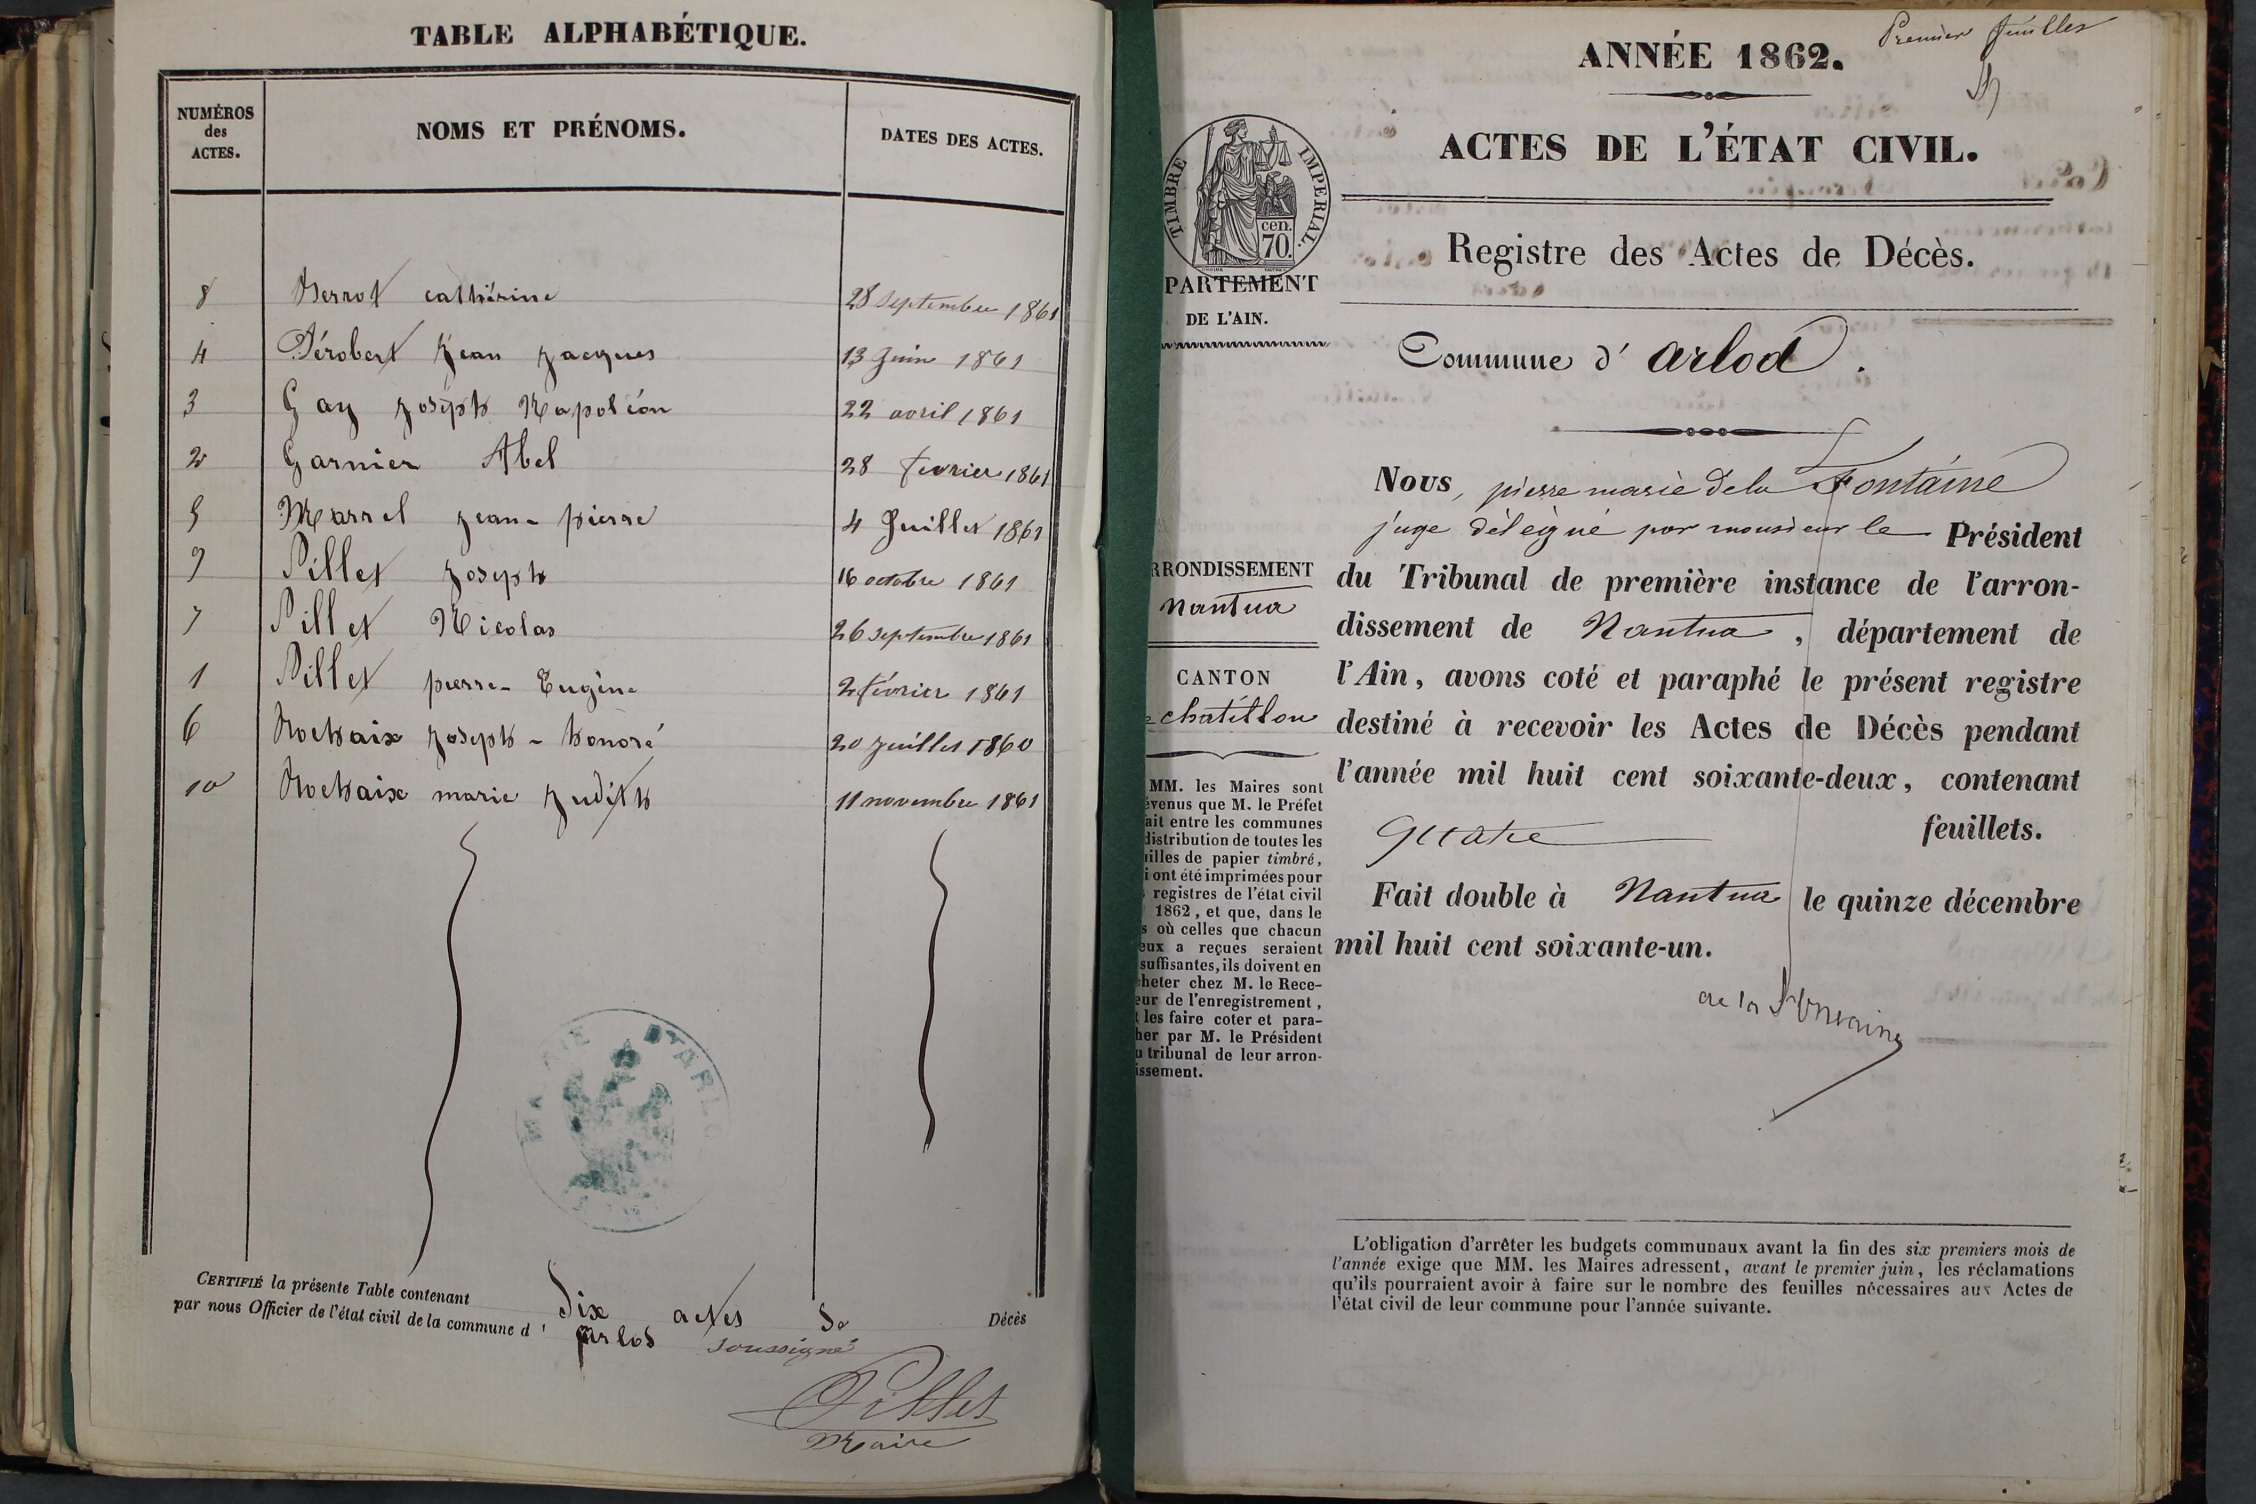 TABLE ALPHABÉTIQUE.
NUMÉROS
des
ACTES.
NOMS ET PRÉNOMS.
DATES DES ACTES.
8 catherine 28 septembre 1861
4 Pérobert Jean Jacques 13 Juin 1861
3 Gay Joseph Napoléon 22 avril 1861
2 Garnier Abel 28 fevrier 1861
5 Marrel Jean-pierre 4 Juillet 1861
9 Pillet Joseph 16 octobre 1861
7 Pillet Nicolas 26 septembre 1861
1 Pillet pierre-Eugène 2 février 1861
6 Rochaix Joseph-honoré 20 Juillet 1860
10 Rochaix marie Judith 11 novembre 1861
MAIRIE D'ARLO
CERTIFIÉ la présente Table contenant Dix actes de Décès
par nous Officier de l'état civil de la commune d' arlod soussigné
Pillet
Maire
Premier feuillet
ANNÉE 1862.
ACTES DE L'ÉTAT CIVIL.
TIMBRE IMPERIAL.
cen.
70.
PARTEMENT
DE L'AIN.
Registre des Actes de Décès.
Commune d' arlod.
Nous, pierre marie dela Fontaine
juge délégué par monsieur le Président
du Tribunal de première instance de l'arron-
dissement de Nantua, département de
l'Ain, avons coté et paraphé le présent registre
destiné à recevoir les Actes de Décès pendant
l'année mil huit cent soixante-deux, contenant
quatre feuillets.
Fait double à Nantua le quinze décembre
mil huit cent soixante-un.
de la Fontaine
RRONDISSEMENT
Nantua
CANTON
e chatillon
MM. les Maires sont
évenus que M. le Préfet
fait entre les communes
distribution de toutes les
uilles de papier timbré,
i ont été imprimées pour
s registres de l'état civil
1862, et que, dans le
s où celles que chacun
eux a reçues seraient
suffisantes, ils doivent en
cheter chez M. le Rece-
eur de l'enregistrement,
t les faire coter et para-
her par M. le Président
u tribunal de leur arron-
issement.
L'obligation d'arrêter les budgets communaux avant la fin des six premiers mois de
l'année exige que MM. les Maires adressent, avant le premier juin, les réclamations
qu'ils pourraient avoir à faire sur le nombre des feuilles nécessaires aux Actes de
l'état civil de leur commune pour l'année suivante.